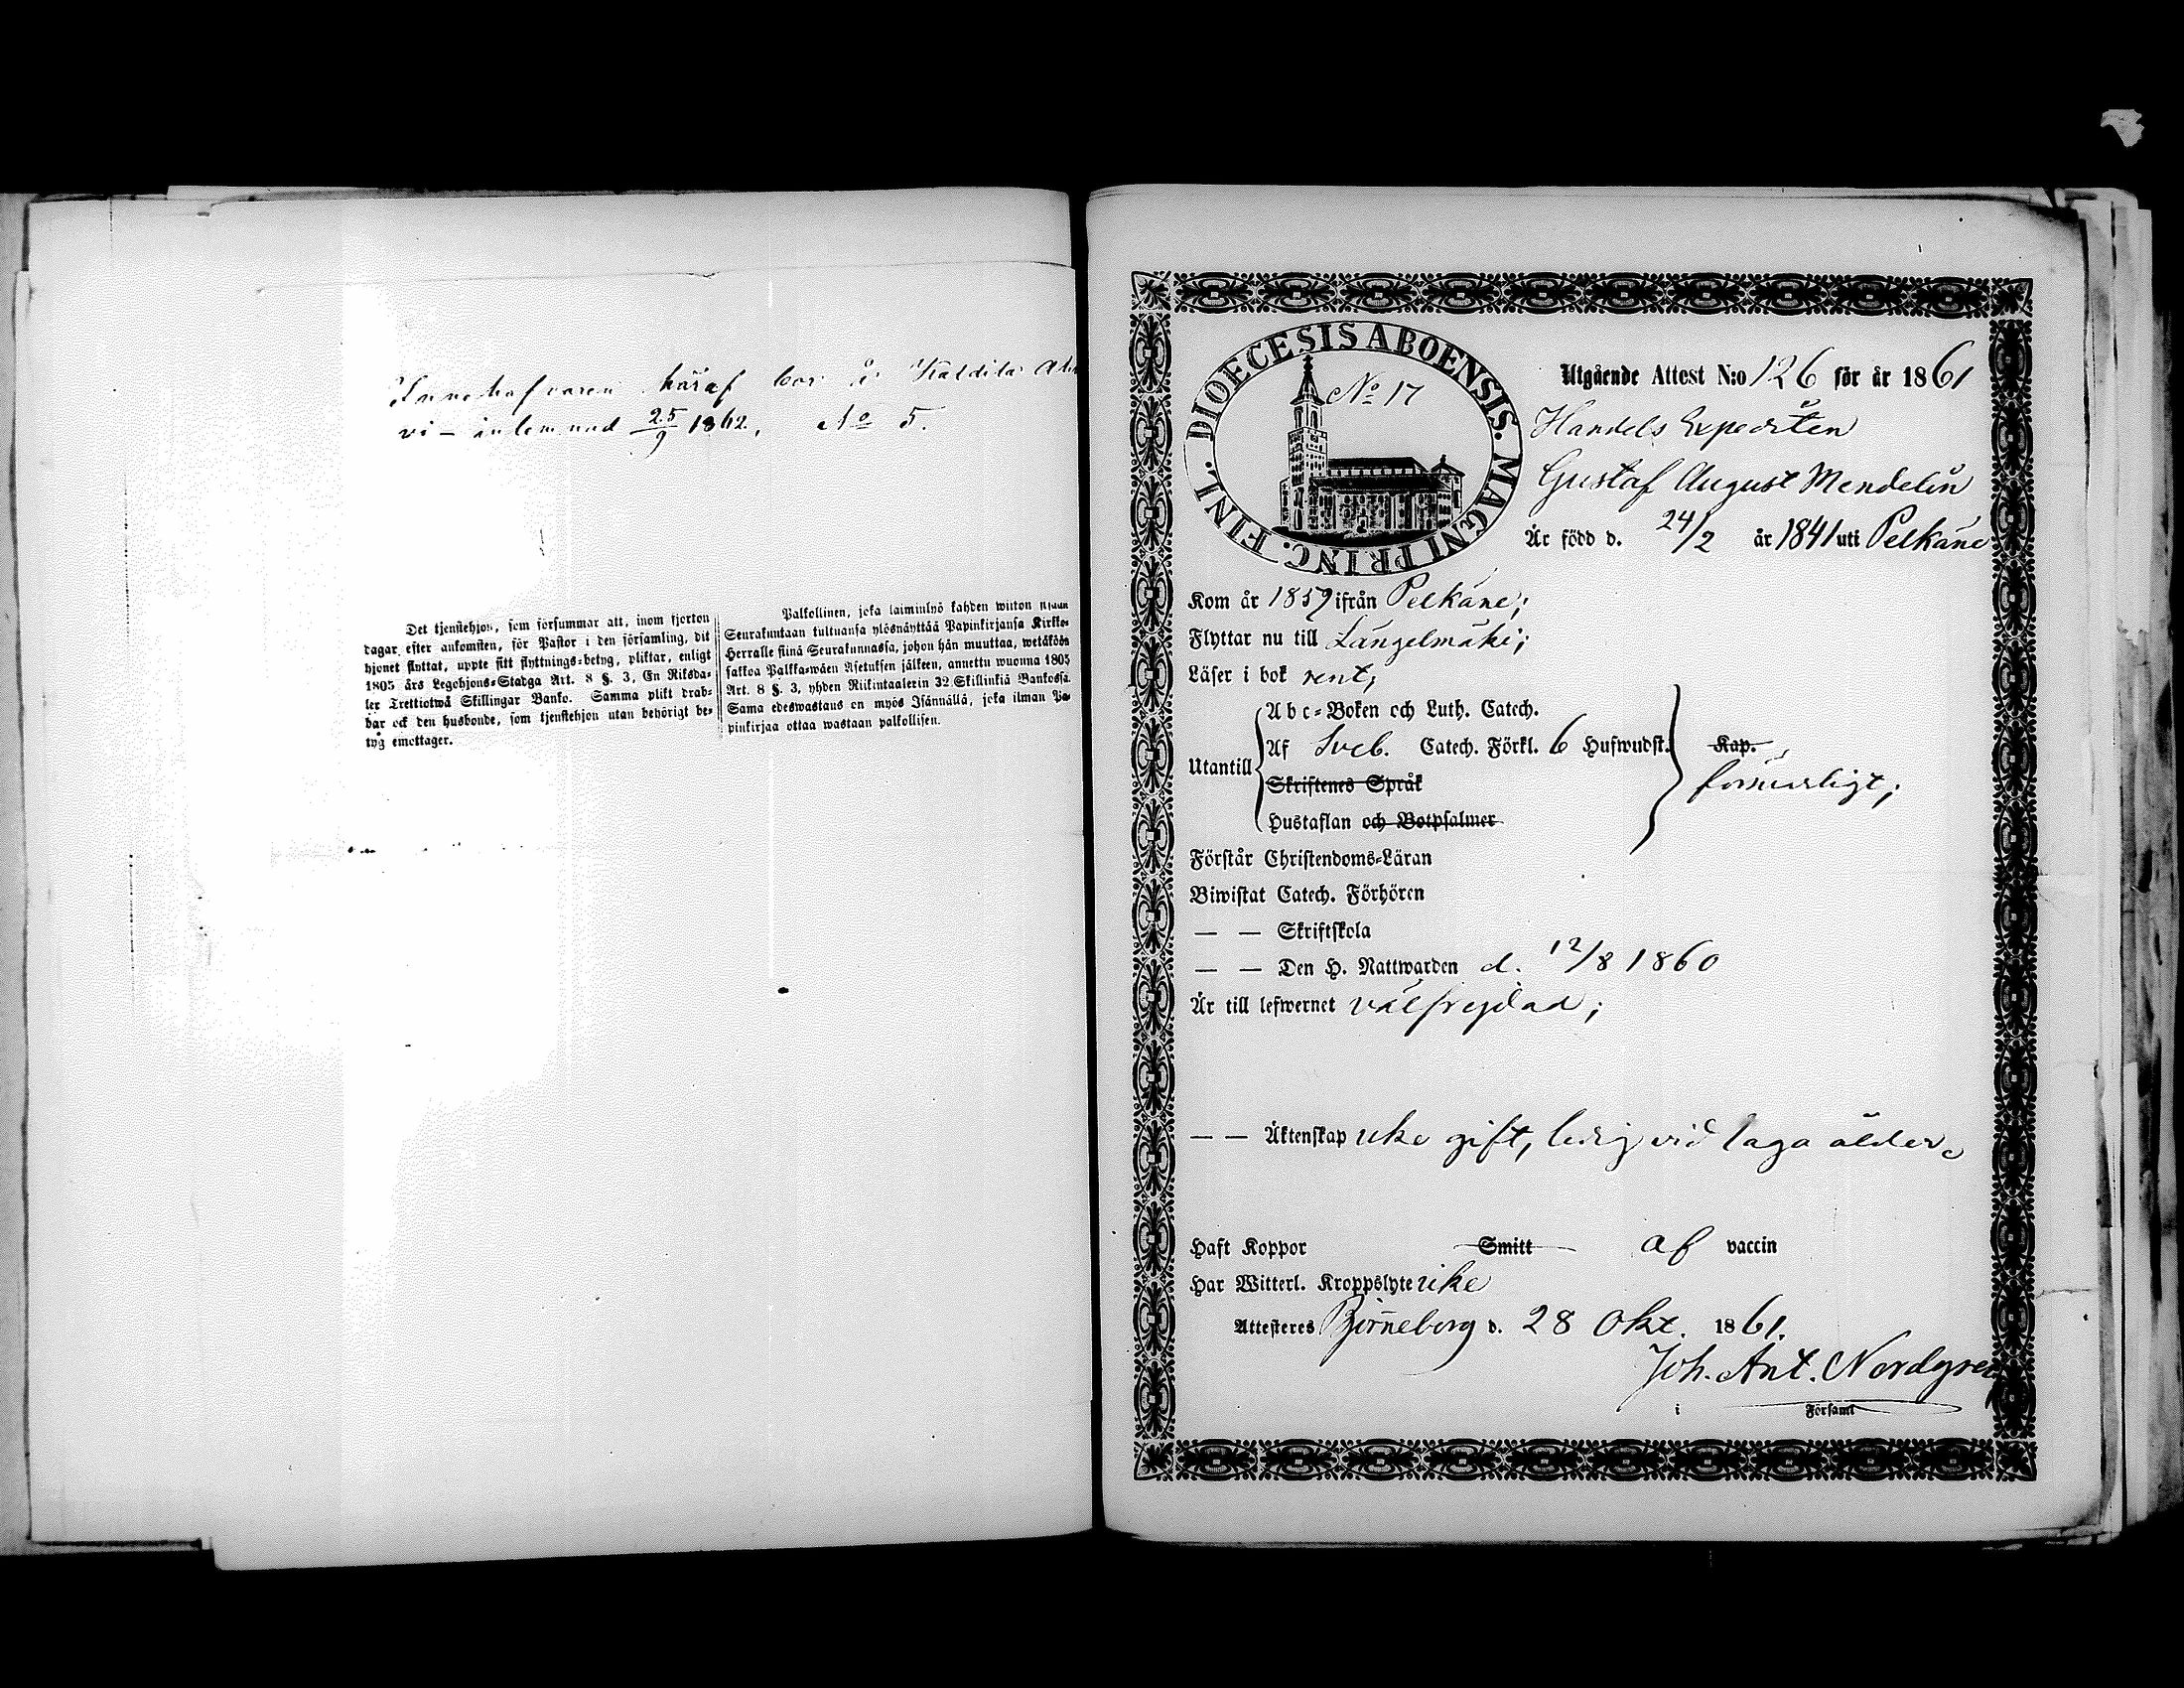 Innehafvaren häraf bor å
vi – inlemnad 25/9 1862, No 5.
Det tjenstehjon, som försummar att, inom fjorton
dagar efter ankomsten, för Pastor i den församling, dit
hjonet flyttat, uppte sitt flyttnings-betyg, pliktar, enligt
1805 års Legohjons-Stadga Art. 8 §. 3, En Riksda-
ler Trettiotwå Skillingar Banko. Samma plikt drab-
bar ock den husbonde, som tjenstehjon utan behörigt be-
tyg emottager.
Palkollinen, joka laiminlyö kahden wiikon
Seurakuntaan tultuansa ylösnäyttää Papinkirjansa Kirkko-
Herralle siinä Seurakunnassa, johon hän muuttaa, wetäköön
sakkoa Palkka-wäen Asetuksen jälkeen, annettu wuonna 1805
Art. 8 §. 3, yhden Riikintaalerin 32 Skillinkiä Bankossa.
Sama edeswastaus on myös Isännällä, joka ilman Pa-
pinkirjaa ottaa wastaan palkollisen.
DIOECESIS ABOENSIS. MAGNI PRINC. FINL.
No 17
Utgående Attest N:o 126 för år 1861
Handels Expediten
Gustaf August Mendelin
Är född d. 24/2 år 1841 uti Pelkäne
Kom år 1859 ifrån Pelkäne;
Flyttar nu till Längelmäki;
Läser i bok rent;
Utantill
Abc-Boken och Luth. Catech.
Af Sveb. Catech. Förkl. 6 Hufwudst. Kap.
Skriftenes Språk
försvarligt;
Hustaflan och Botpsalmer
Förstår Christendoms-Läran
Biwistat Catech. Förhören
— — Skriftskola
— — Den H. Nattwarden d. 12/8 1860
Är till lefwernet välfrejdad;
— — Äktenskap icke gift, ledig vid laga ålder.
Haft Koppor Smitt af vaccin
Har Witterl. Kroppslyte icke
Attesteres Björneborg d. 28 Okt. 1861.
Joh. Ant. Nordgren
i Församl